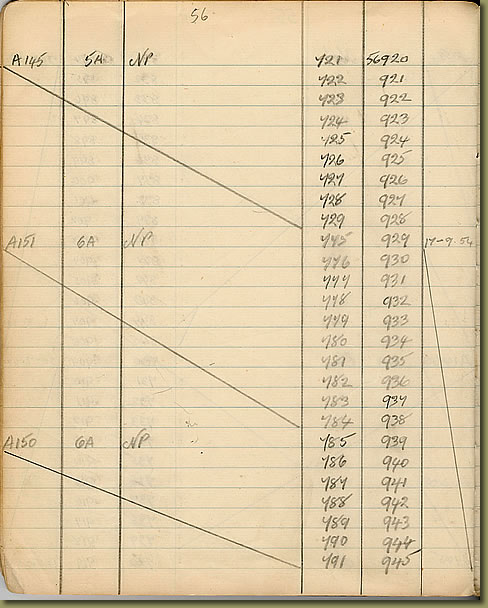 56
A145 5A NP 721 56920
722 921
723 922
724 923
725 924
726 925
727 926
728 927
729 928
A151 6A NP 775 929 17-9-54
776 930
777 931
778 932
779 933
780 934
781 935
782 936
783 937
784 938
A150 6A NP 785 939
786 940
787 941
788 942
789 943
790 944
791 945